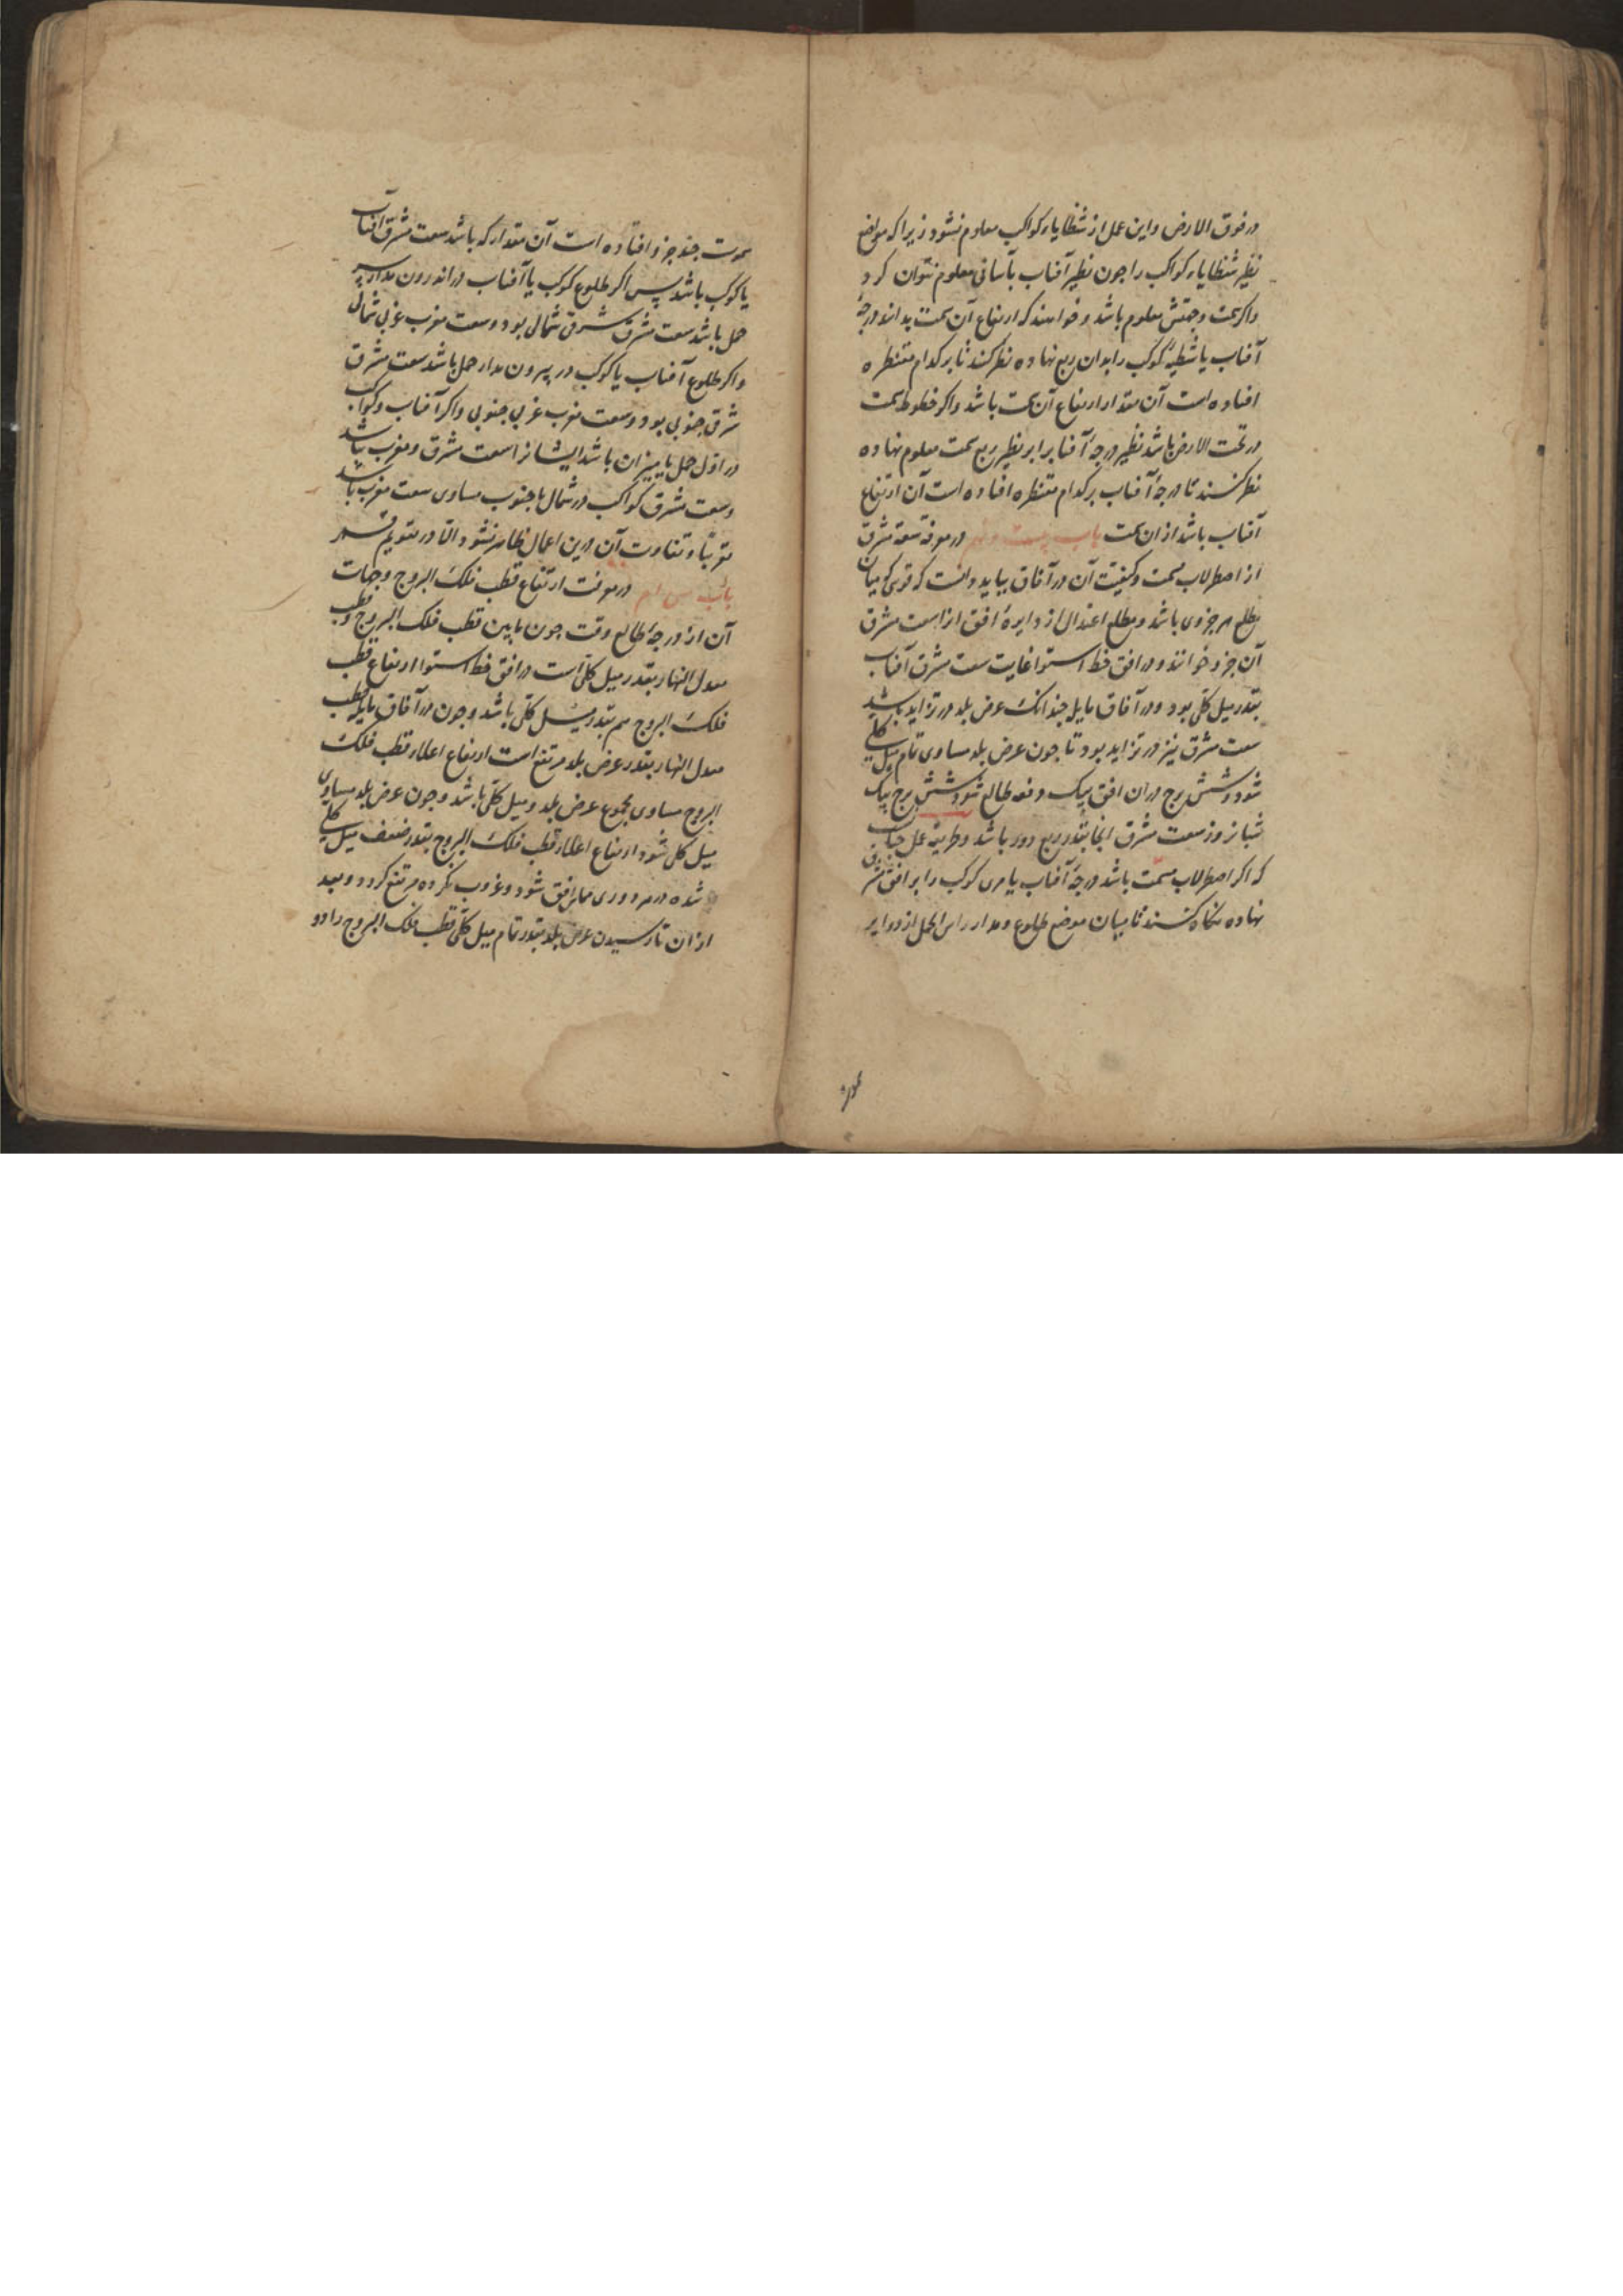 در فوق الارض و این عمل از شظایاء کواکب معلوم نشود زیرا که مواضع
نظیر شظایاء کواکب را جون نظیر آفتاب بآسانی معلوم نتوان کرد
و اکر سمت و جهتش معلوم باشد و خواهند که ارتفاع آن سمت بدانند درجهٔ
آفتاب یا شظیهٔ کوکب را بدان ربع نهاده نظر کنند تا بر کدام مقنطره
افتاده است آن مقدار ارتفاع آن سمت باشد و اکر خطوط سمت
در تحت الارض باشد نظیر درجهٔ آفتاب برابر نظیر ربع سمت معلوم نهاده
نظر کنند تا درجهٔ آفتاب بر کدام مقنطره افتاده است آن ارتفاع
آفتاب باشد از ان سمت باب بیست و نهم در معرفة سعة مشرق
از اصطرلاب مسمت و کیفیت آن در آفاق بباید دانست که قوسی که میان
مطلع هر جزوی باشد و مطلع اعتدال از دایرهٔ افق انرا سعت مشرق
آن جزو خوانند و در افق خط استوا غایت سعت مشرق آفتاب
بقدر میل کلی بود و در آفاق مایله جندانک عرض بلد در تزاید باشد
سعت مشرق نیز در تزاید بود تا جون عرض بلد مساوی تمام میل کلی
شود و شش برج در ان افق بیک دفعه طالع شود و شش برج بیک
شبانروز سعت مشرق انجا بقدر ربع دور باشد و طریقهٔ عمل جنانست
که اکر اصطرلاب مسمت باشد درجهٔ آفتاب یا مری کوکب را بر افق مشرق
نهاده نکاه کنند تا میان موضع طلوع و مدار راس الحمل از دوایر
سموت
سموت جند جزو افتاده است آن مقدار که باشد سعت مشرق آفتاب
یا کوکب باشد پس اکر طلوع کوکب یا آفتاب در اندرون مدار سر
حمل باشد سعت مشرق شرقی شمالی بود و سعت مغرب غربی شمالی
و اکر طلوع آفتاب یا کوکب در بیرون مدار حمل باشد سعت مشرق
شرقی جنوبی بود و سعت مغرب غربی جنوبی و اکر آفتاب و کواکب
در اول حمل یا میزان باشد ایشانرا سعت مشرق و مغرب نباشد
و سعت مشرق کواکب در شمال یا جنوب مساوی سعت مغرب باشد
تقریباً و تفاوت آن درین اعمال ظاهر نشود الا در تقویم قمر
باب سی ام در معرفت ارتفاع قطب فلک البروج و جهات
آن از درجهٔ طالع وقت جون مابین قطب فلک البروج و قطب
معدل النهار بقدر میل کلی است در افق خط استوا ارتفاع قطب
فلک البروج هم بقدر میل کلی باشد و جون در آفاق مایله قطب
معدل النهار بقدر عرض بلد مرتفع است ارتفاع اعلاء قطب فلک
البروج مساوی مجموع عرض بلد و میل کلی باشد و جون عرض بلد مساوی
میل کلی شود ارتفاع اعلاء قطب فلک البروج بقدر ضعف میل کلی
شده در هر دوری مماس افق شود و غروب نکرده مرتفع کردد و بعد
از ان تا رسیدن عرض بلد بقدر تمام میل کلی قطب فلک البروج را دو